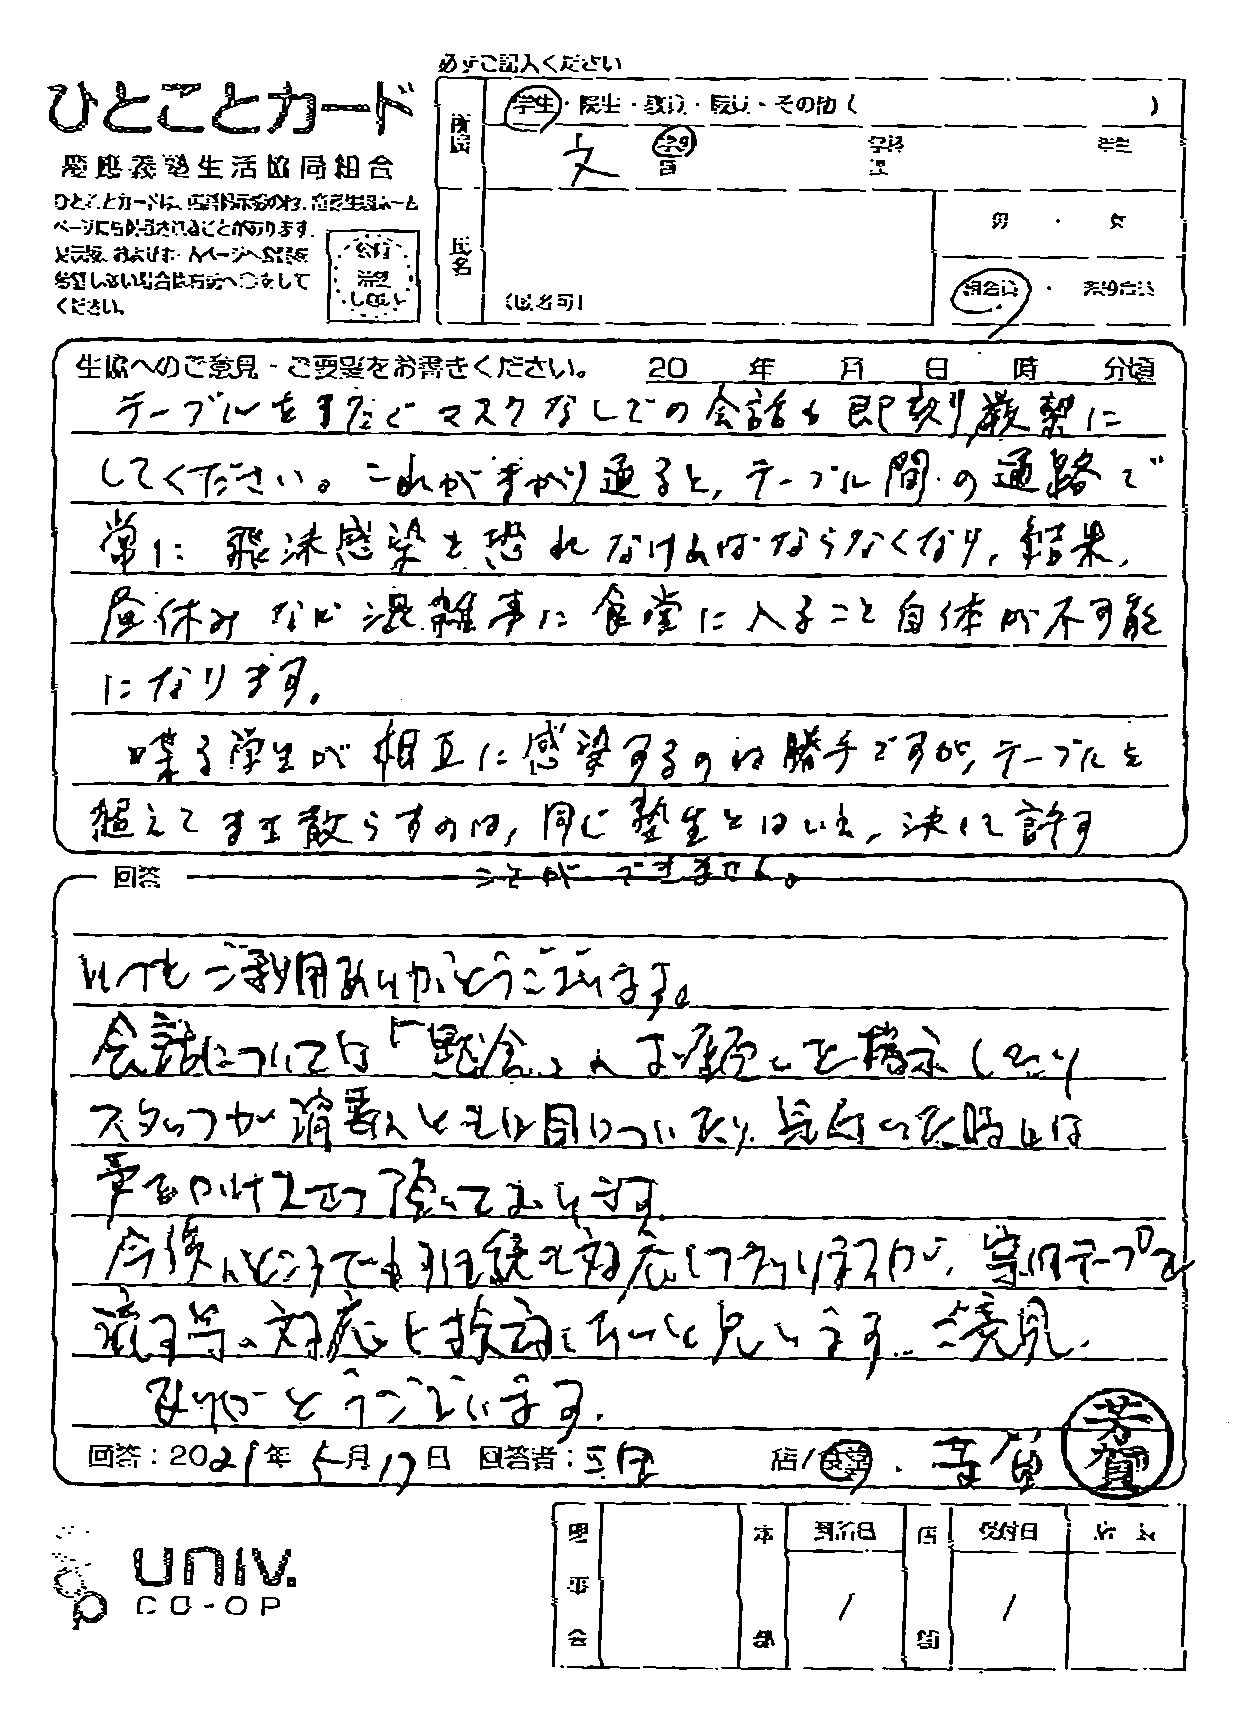 必ずご記入ください
ひとことカード
慶應義塾生活協同組合
ひとことカードは、店舗掲示板のほか、慶應生協ホーム
ページにも掲載されることがあります。
ください。
公開
希望
しない
所属
学生・院生・教員・職員・その他( )
文 学部
氏名
(匿名可)
男 ・ 女
組合員 ・ 非組合員
生協へのご意見・ご要望をお書きください。 20 年 月 日 時 分頃
テーブルをまたぐマスクなしでの会話も即刻厳禁に
してください。これがまかり通ると、テーブル間の通路で
常に飛沫感染を恐れなければならなくなり、結果、
昼休みなど混雑時に食堂に入ること自体が不可能
になります。
喋る学生が相互に感染するのは勝手ですが、テーブルを
超えてまき散らすのは、同じ塾生とはいえ、決して許す
ことができません。
回答
いつもご利用ありがとうございます。
会話については「黙食」のお願いを掲示したり
スタッフが消毒とともに目についたり、気付いた時には
声をかけさせて頂いております。
今後のところでも引き続き対応してまいりますが、専用テープを
流す等の対応も検討したいと思います。ご意見、
ありがとうございます。
回答:2021年5月17日 回答者: 店/食堂 芳賀
芳賀
univ.
CO-OP
理事会
本部
発行日
/
店舗
受付日
/